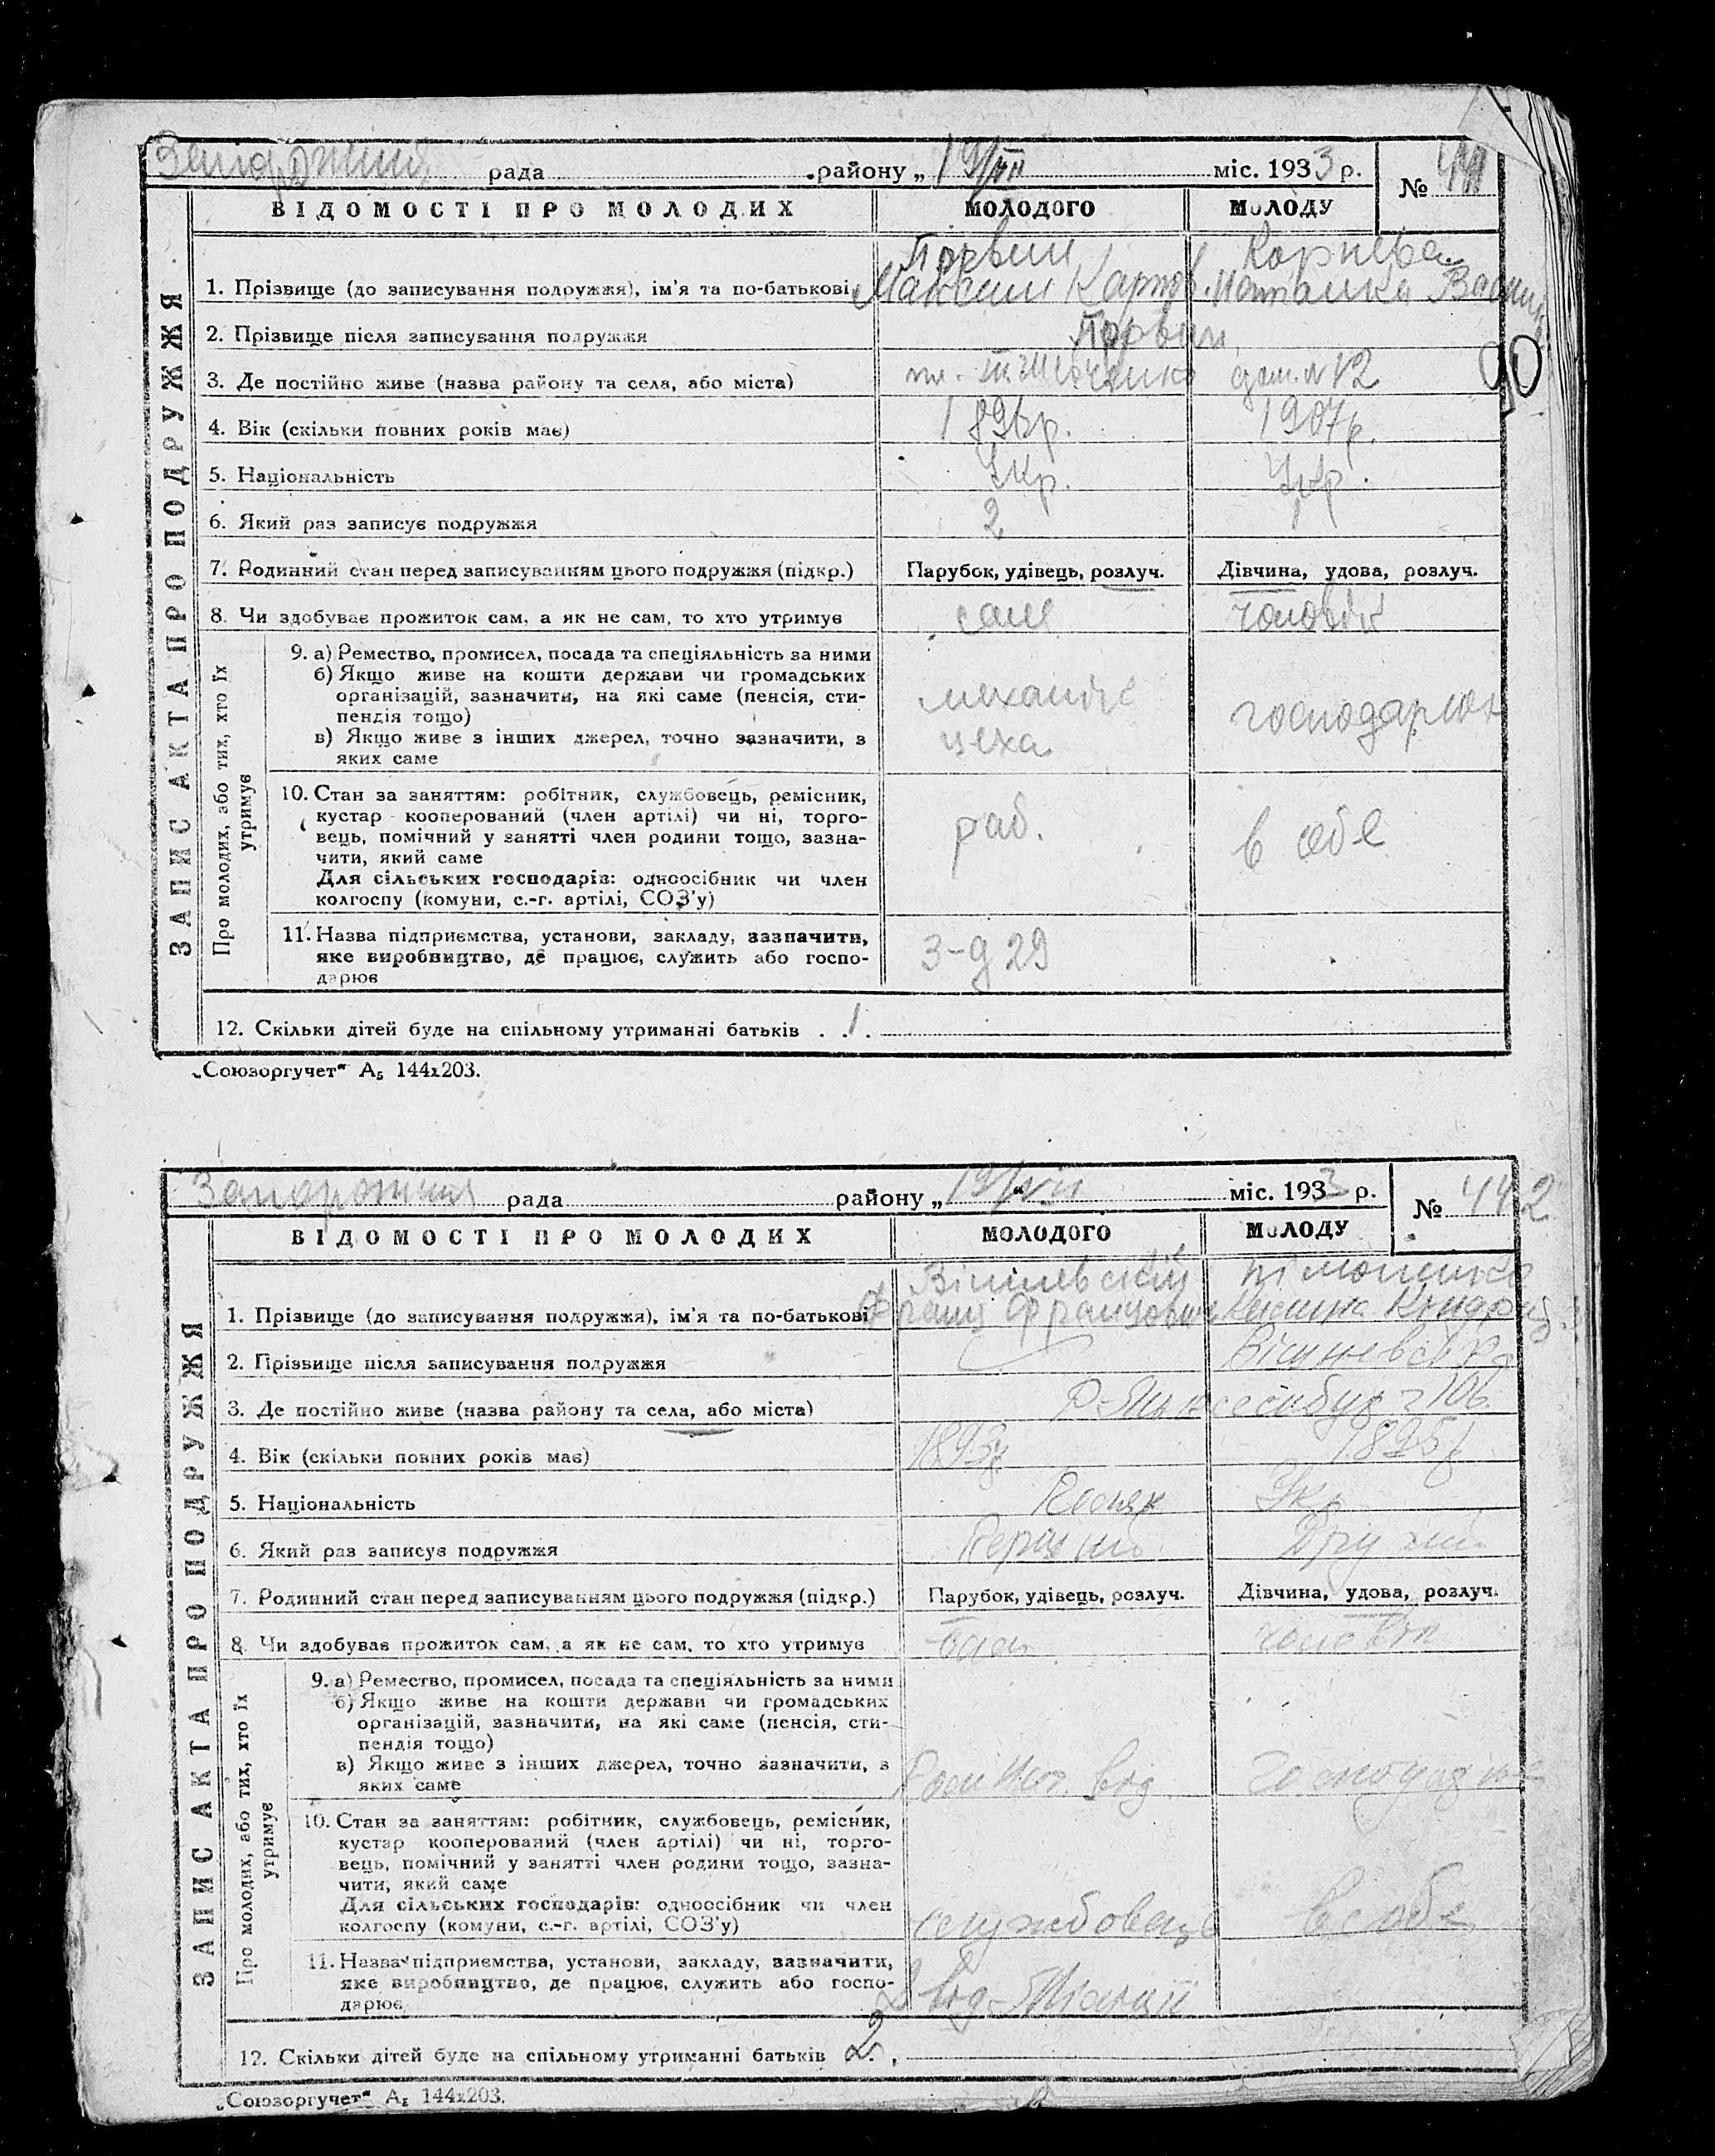 рада району „ 19/VII міс. 1933 р. № 441
ВІДОМОСТІ ПРО МОЛОДИХ МОЛОДОГО МОЛОДУ
ЗАПИС АКТА ПРО ПОДРУЖЖЯ
Корнева
1. Прізвище (до записування подружжя), ім'я та по-батькові Максим
2. Прізвище після записування подружжя
3. Де постійно живе (назва району та села, або міста) дом. № 12
4. Вік (скільки повних років має) 1907 р.
5. Національність Укр. Укр.
6. Який раз записує подружжя 2 1
7. Родинний стан перед записуванням цього подружжя (підкр.) Парубок, удівець, розлуч. Дівчина, удова, розлуч.
8. Чи здобуває прожиток сам, а як не сам, то хто утримує сам чоловік
Про молодих, або тих, хто їх утримує
9. а) Ремество, промисел, посада та спеціяльність за ними
б) Якщо живе на кошти держави чи громадських
організацій, зазначити, на які саме (пенсія, сти-
пендія тощо)
в) Якщо живе з інших джерел, точно зазначити, з
яких саме
механік
цеха
10. Стан за заняттям: робітник, службовець, ремісник,
кустар кооперований (член артілі) чи ні, торго-
вець, помічний у занятті член родини тощо, зазна-
чити, який саме
Для сільських господарів: одноосібник чи член
колгоспу (комуни, с.-г. артілі, СОЗ'у)
раб. в себе
11. Назва підприємства, установи, закладу, зазначити,
яке виробництво, де працює, служить або госпо-
дарює
З-д 29
12. Скільки дітей буде на спільному утриманні батьків . 1 .
„Союзоргучет" А₅ 144х203.
90
рада району „ 19/VII міс. 1933 р. № 442
ВІДОМОСТІ ПРО МОЛОДИХ МОЛОДОГО МОЛОДУ
ЗАПИС АКТА ПРО ПОДРУЖЖЯ
Вішневський
1. Прізвище (до записування подружжя), ім'я та по-батькові Франц Францович
2. Прізвище після записування подружжя Вішневська
3. Де постійно живе (назва району та села, або міста)
4. Вік (скільки повних років має) 1893 р. 1895 р.
5. Національність Укр
6. Який раз записує подружжя Перший Другий
7. Родинний стан перед записуванням цього подружжя (підкр.) Парубок, удівець, розлуч. Дівчина, удова, розлуч.
8. Чи здобуває прожиток сам, а як не сам, то хто утримує сам чоловік
Про молодих, або тих, хто їх утримує
9. а) Ремество, промисел, посада та спеціяльність за ними
б) Якщо живе на кошти держави чи громадських
організацій, зазначити, на які саме (пенсія, сти-
пендія тощо)
в) Якщо живе з інших джерел, точно зазначити, з
яких саме
10. Стан за заняттям: робітник, службовець, ремісник,
кустар кооперований (член артілі) чи ні, торго-
вець, помічний у занятті член родини тощо, зазна-
чити, який саме
Для сільських господарів: одноосібник чи член
колгоспу (комуни, с.-г. артілі, СОЗ'у)
службовець в себе
11. Назва підприємства, установи, закладу, зазначити,
яке виробництво, де працює, служить або госпо-
дарює
12. Скільки дітей буде на спільному утриманні батьків 2 .
„Союзоргучет" А₅ 144х203.